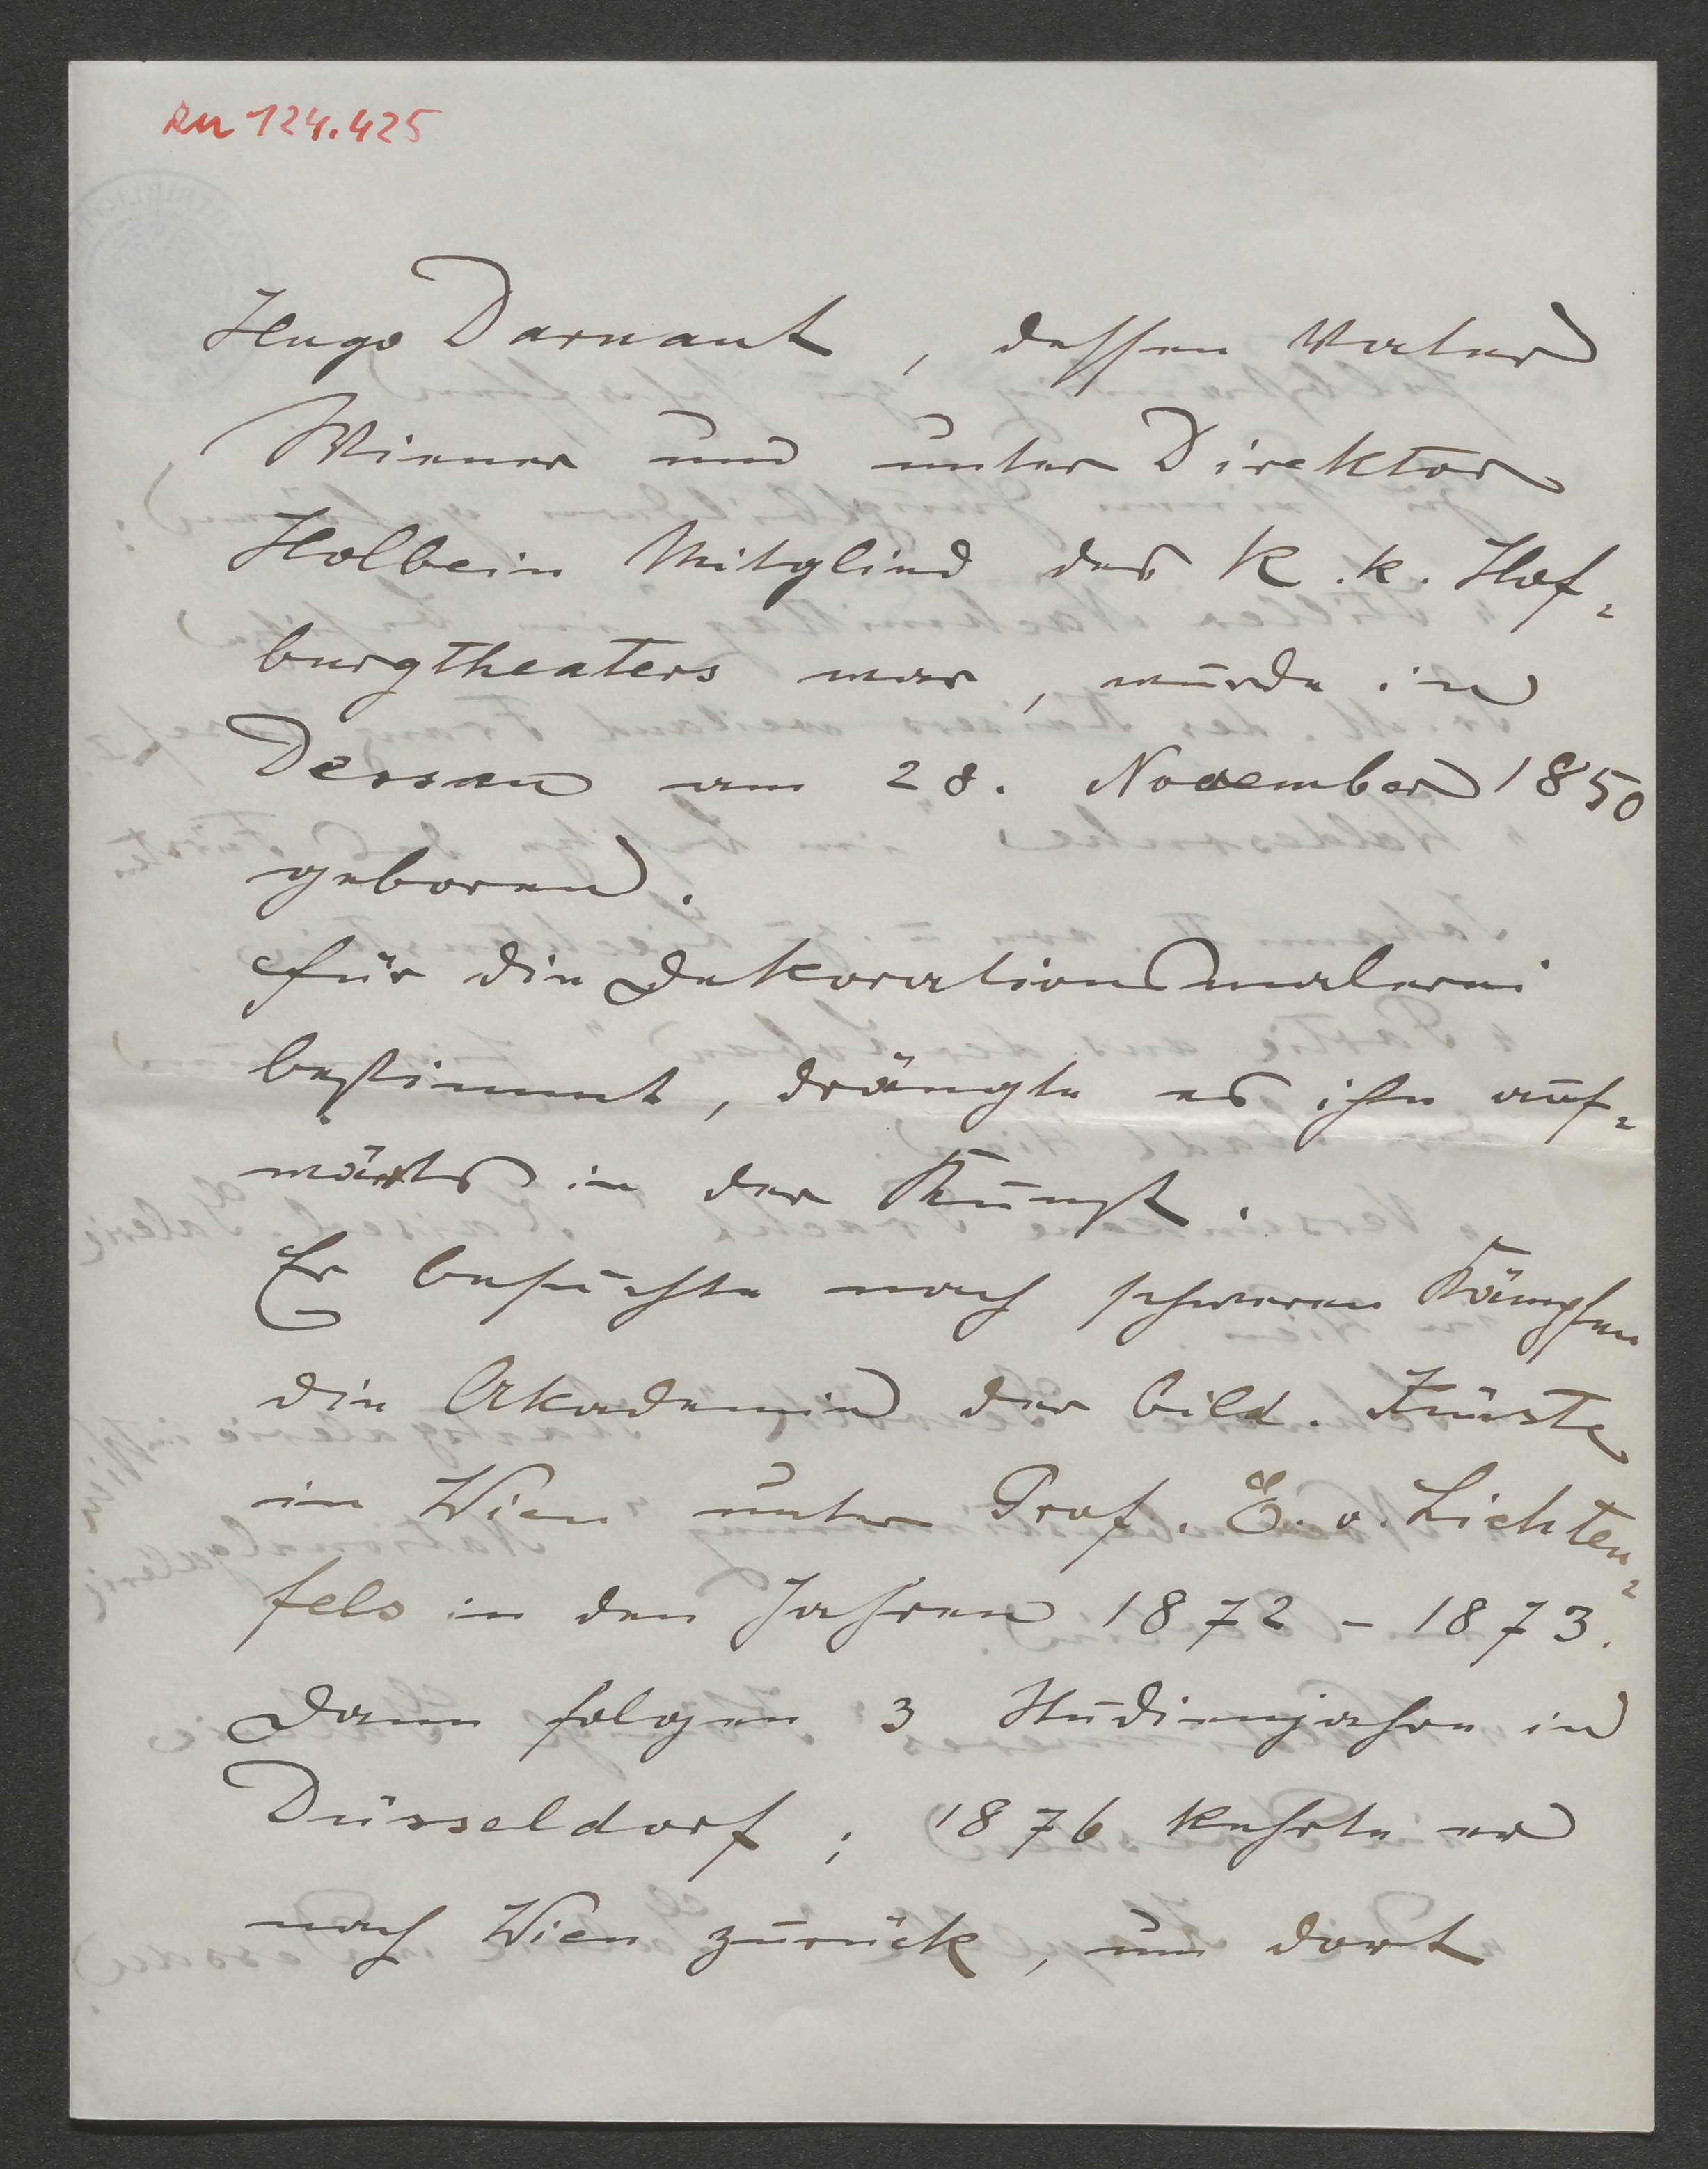 RN 124.425
Hugo Darnaut, dessen Vater
Wiener und unter Direktor
Holbein Mitglied des K. k. Hof-
burgtheaters war, wurde in
Dessau am 28. November 1850
geboren.
Für die Dekorationsmalerei
bestimmt, drängte es ihn auf-
wärts in der Kunst.
Er besuchte nach schweren Kämpfen
die Akademie der bild. Künste
in Wien unter Prof. E. v. Lichten-
fels in den Jahren 1872 – 1873.
Dann folgen 3 Studienjahre in
Düsseldorf; 1876 kehrte er
nach Wien zurück, um dort